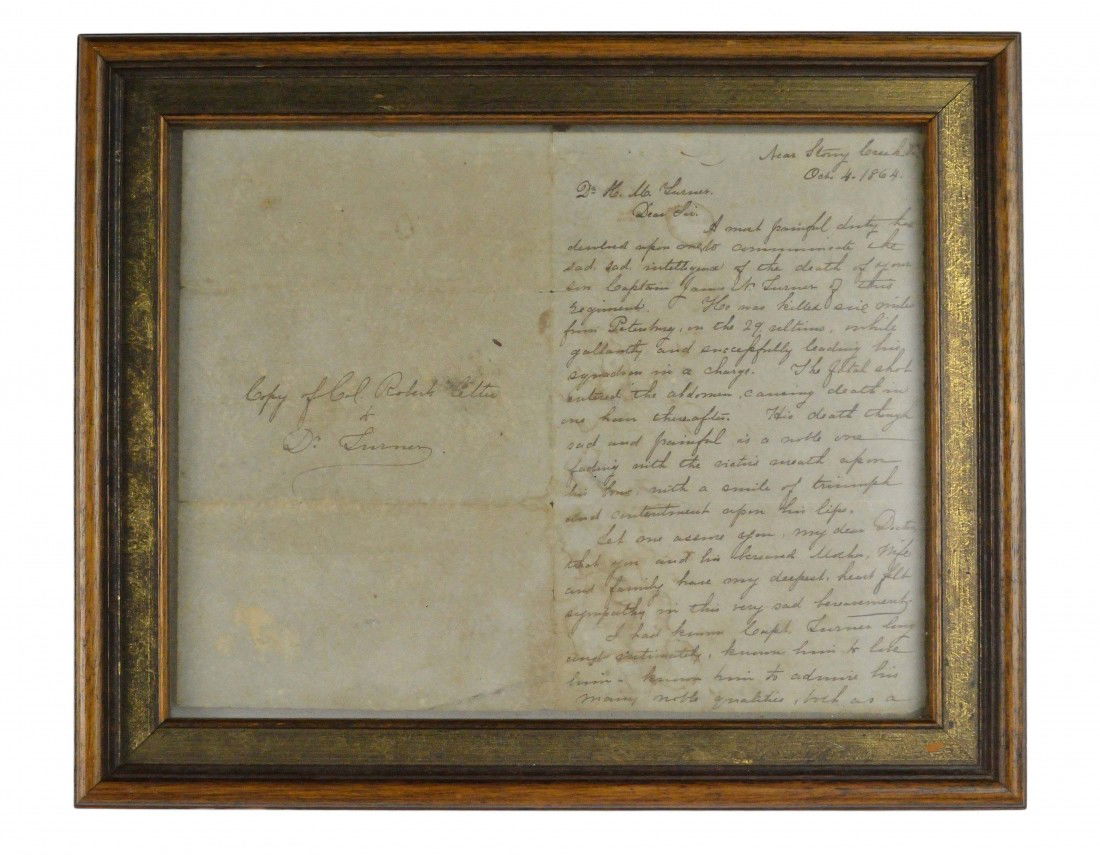 Copy of Col Roberts letter
to
Dr Turner.
Near Stony Creek
Oct. 4. 1864.
Dr H. M. Turner.
Dear Sir.
A most painful duty has
devolved upon me to communicate the
sad, sad, intelligence of the death of your
son Captain James N. Turner of this
regiment. He was killed six miles
from Petersburg, on the 29 ultimo, while
gallantly and successfully leading his
squadron in a charge. The fatal shot
entered the abdomen, causing death in
one hour thereafter. His death though
sad and painful is a noble one
fading with the victor's wreath upon
his brow, with a smile of triumph
and contentment upon his lips.
Let me assure you, my dear Doctor
that you and his bereaved Mother, Wife
and family have my deepest, heart felt
sympathy in this very sad bereavement
I had known Capt. Turner long
and intimately, known him to love
him - known him to admire his
many noble qualities, both as a